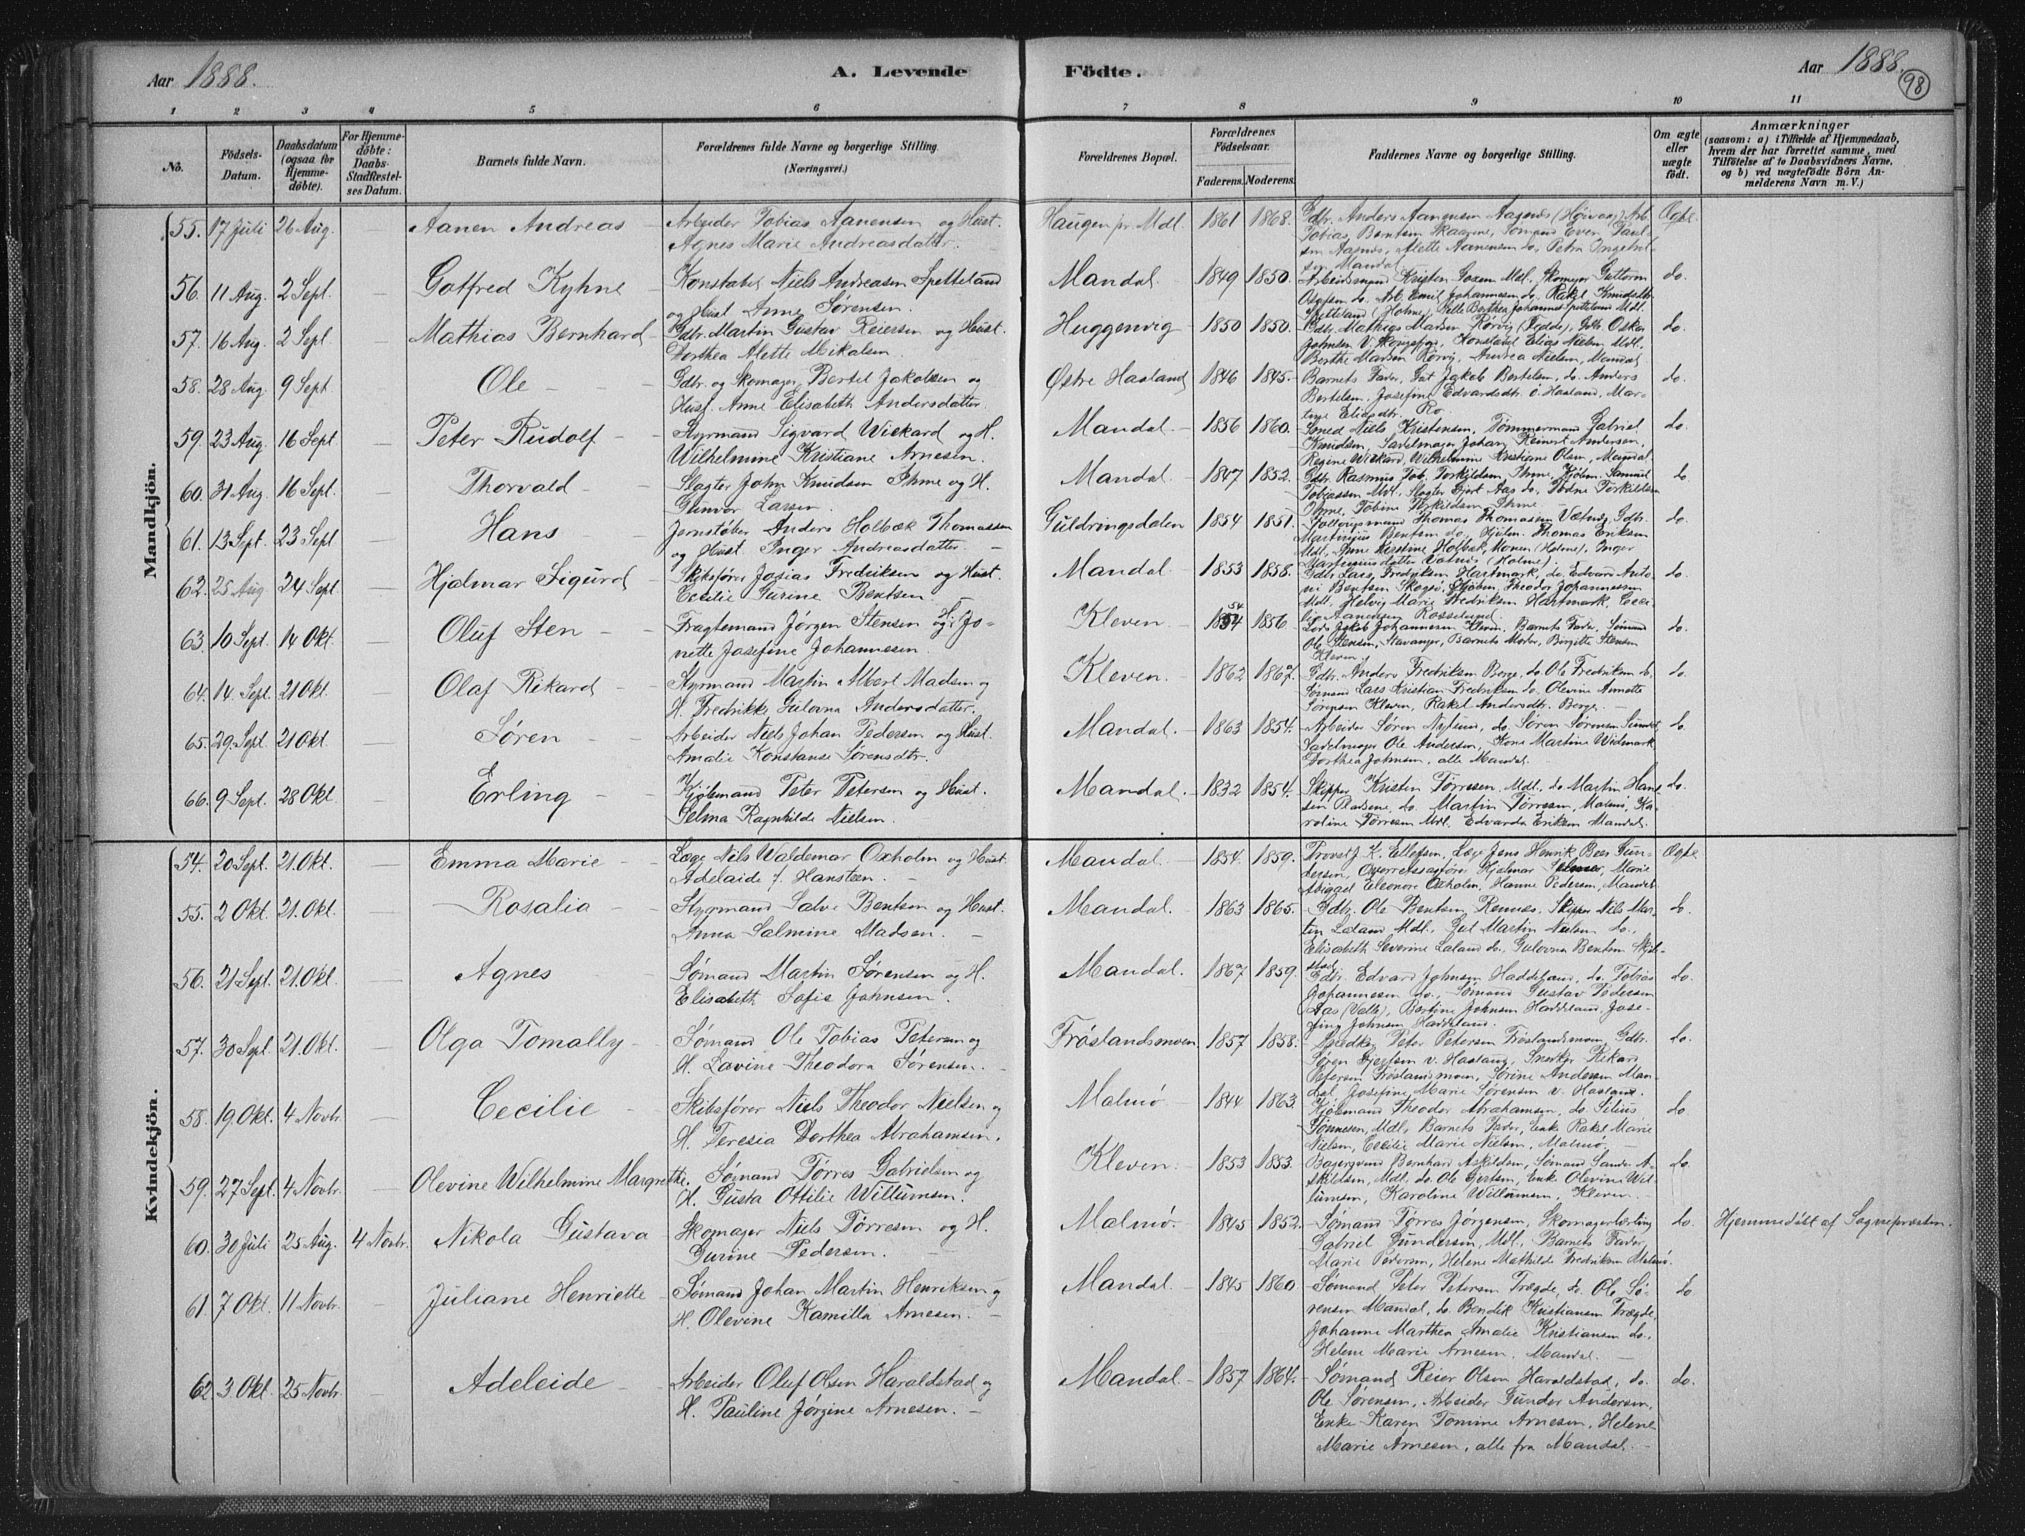 Aar 1888. A. Levende Födte. Aar 1888.
98
1 2 3 4 5 6 7 8 9 10 11
No.
Födsels-Datum.
Daabsdatum (ogsaa for Hjemmedöbte).
For Hjemmedöbte: Daabs-Stadfæstelses Datum.
Barnets fulde Navn.
Forældrenes fulde Navne og borgerlige Stilling. (Næringsvei.)
Forældrenes Bopæl.
Forældrenes Födselsaar. Faderens. Moderens.
Faddernes Navne og borgerlige Stilling.
Om ægte eller uægte födt.
Anmærkninger (saasom: a) i Tilfælde af Hjemmedaab, hvem der har forrettet samme, med Tilföielse af to Daabsvidners Navne, og b) ved uægtefödte Börn Anmelderens Navn m. V.)
Mandkjön.
55. 17 Juli 26 Aug. — Aanen Andreas — Arbeider Tobias Aanensen og Hust. Haugen pr. Mdl. 1861 1868. Gdbr. Anders Aanensen Aagnæs (Höivaag), Arb. Ægte
Agnes Marie Andreasdatter. Tobias Bentsen Skagene, Sömand Even
Mandal.
56. 11 Aug. 2 Sept. — Gotfred Kyhne — Konstabel Niels Andreasen Spetteland Mandal. 1849 1850. Arbeidsmand Kristen do.
og Hust. Anne Sørensen. Olufsen do. Arb. Emil Johannesen do. Rakel
57. 16 Aug. 2 Sept — Mathias Bernhard — Gdbr. Martin Gustav Reiersen og Hust. Huggenvig 1850 1850. Gdbr. Mathias Madsen Rørvig do.
Dorthea Alette Mikalsen. Konstabel Elias Nielsen Mdl.
Berthe Madsen Rørvig, Andrea Nielsen, Mandal
58. 28 Aug. 9 Sept — Ole — Gdbr. og Skomager Bertel Jakobsen og Østre Haaland 1846 1845. Barnets Fader, Gut Jakob Bertelsen, do. Anders do.
Hust. Anne Elisabeth Andersdatter. Bertelsen, Josefine Edvardsdtr. ö. Haaland, Mar-
59. 23 Aug. 16 Sept. — Peter Rudolf — Styrmand Sigvard Wickard og H. Mandal. 1856 1860. Smed Niels Kristensen, Tømmermand Gabriel do.
Wilhelmine Kristiane Arnesen. Knudsen, Sadelmager Johan Reinert Andersen,
Regine Wickard, Wilhelmine Kristiane Olsen, Mandal.
60. 31 Aug. 16 Sept. — Thorvald — Slagter John Knudsen Ihme og H. Mandal 1847 1852. Gdbr. Rasmus Tob. Torkildsen Ihme, do
Gunvor Larsen. Tobiassen Mdl., Slagter Gjert Aas do, Torkildsen
61. 13 Sept. 23 Sept. — Hans — Jernstøber Anders Holbæk Thomassen Guldringsdalen 1854 1851. Thomas Thomassen do.
og Hust. Inger Andreasdatter. — Bentsen do, Hjulm. Thomas Eriksen
Mdl, Anne Kirstine Holbæk, Monen (Holme), Inger
62. 25 Aug 24 Sept. — Hjalmar Sigurd — Skibsfører Josias Fredriksen og Hust. Mandal 1853 1858. Gdbr. Lars Fredriksen Hartmark, do. Edvard do.
Cecilie Gurine Bentsen — Theodor Johannessen
Mdl, Helvig Marie Fredriksen Hartmark,
63. 10 Sept. 14 Okt. — Oluf Sten — Fragtemand Jørgen Stensen og H. Jo- Kleven. 1854 1856 Jakob Johannesen Kleven, Barnets Fader, Sømand do.
nette Josefine Johannesen. Ole Stensen, Stavanger, Barnets Moder, Birgitte Stensen
Kleven.
64. 14. Sept. 21 Okt. — Olaf Rikard — Styrmand Martin Albert Madsen og Kleven. 1862 1867. Gdbr. Anders Fredriksen Berge, do. Ole Fredriksen do. do.
H. Fredrikke Gulovna Andersdatter. Sømand Lars Kristian Fredriksen do. Olevine Annette
Sørensen Kleven, Rakel Andersdtr. Berge. —
65. 29. Sept. 21 Okt. — Søren — Arbeider Niels Johan Pedersen og Hust. Mandal. 1863 1854. Arbeider Søren Nylund, do. Søren Sørensen do
Amalie Konstanse Sørensdtr. Sadelmager Ole Andersen, Kone Martine Widmark
Dorthea Johnsen, alle Mandal.
66. 9 Sept. 28 Okt. — Erling — Kjøbmand Peter Petersen og Hust. Mandal. 1832 1854. Skipper Kristen Tørresen, Mdl., do Martin Han- do.
Selma Ragnhilde Nielsen. do. Martin Tørresen, Malmø, Ka-
roline Tørresen Mdl. Edvarda Eriksen Mandal.
Kvindekjön.
54. 20 Sept. 21 Okt. — Emma Marie — Læge Nils Waldemar Oxholm og Hust. Mandal. 1854. 1859. Provst J. K. Ellefsen, Læge Jens Henrik Beer Gun- Ægte
Adelaide f. Hansteen. — dersen, Overretssagfører Hjalmar Marie
Abigael Eleonore Oxholm, Hanne Pedersen, Mandal.
55. 2 Okt. 21. Okt. — Rosalia — Styrmand Salve Bentsen og Hust. Mandal. 1863 1865. Gdbr. Ole Bentsen Rennes, Skipper Nils Mar- do.
Anna Salmine Madsen. — tin Laland Mdl, Gut Martin Nielsen do.,
Elisabeth Severine Laland do. Gulovna Bentsen
56. 21 Sept. 21. Okt. — Agnes — Sømand Martin Sørensen og H. Mandal. 1867 1859. Gdbr. Edvard Johnsen Haddeland, do. Tobias do.
Elisabeth Sofie Johnsen. Johannesen do., Sømand Gustav Pedersen
Aas (Valle), Bertine Johnsen Haddeland, Jose-
fine Johnsen Haddeland.
57. 30 Sept. 21. Okt. — Olga Tomally — Sømand Ole Tobias Petersen og Frøslandsmoen 1857 1858. Snedker Peter Petersen Frøslandsmoen, Gdbr. do.
H. Lavine Theodora Sørensen. — Søren v. Haaland, Snedker Rikard
Petersen Frøslandsmoen, Sørine Andersen Man-
dal, Josefine Marie Sørensen v. Haaland.
58. 19. Okt. 4 Novbr. — Cecilie — Skibsfører Niels Theodor Nielsen og Malmø — 1844 1863. Kjøbmand Theodor Abrahamsen, do. do
H. Teresia Dorthea Abrahamsen. Sønnesen, Mdl., Barnets Fader, Enke Rakel Marie
Nielsen, Cecilie Marie Nielsen, Malmø. —
59. 27 Sept. 4 Novbr. — Olevine Wilhelmine Margrethe. Sømand Tørres Gabrielsen og Kleven. 1853 1853. Bernhard Askildsen, Sømand A- do.
H. Gusta Ottilie Willumsen. skildsen, Mdl. do. Ole Gjertsen, Enke Olevine Wil-
lumsen, Karoline Willumsen, Kleven.
60. 30 Juli 25 Aug. 4 Novbr. Nikola Gustava Skomager Niels Tørresen og H. Malmø. 1845 1852. Sømand Tørres Jørgensen, Skomagerlærling do. Hjemmedøbt af Sognepræsten.
Gurine Pedersen. Gabriel Gundersen, Mdl., Barnets Fader,
Marie Pedersen, Helene Mathilde Fredriksen Malmø.
61. 7 Okt. 11 Novbr. — Juliane Henriette — Sømand Johan Martin Henriksen og Mandal 1845 1860 Sømand Peter Petersen Trægde, do. Ole Sø- do.
H. Olevine Kamilla Arnesen. — rensen Mandal, do. Bendik Kristiansen Trægde,
Johanne Marthea Amalie Kristiansen do.,
Helene Marie Arnesen. Mandal. —
62 3 Okt. 25 Novbr. — Adeleide — Arbeider Oluf Olsen Haraldstad og Mandal — 1857 1864. Sømand Reier Olsen Haraldstad, do. do.
H. Pauline Jørgine Arnesen. — Ole Sørensen, Arbeider Gunder Andersen,
Enke Karen Tomine Arnesen, Helene
Marie Arnesen, alle fra Mandal. —